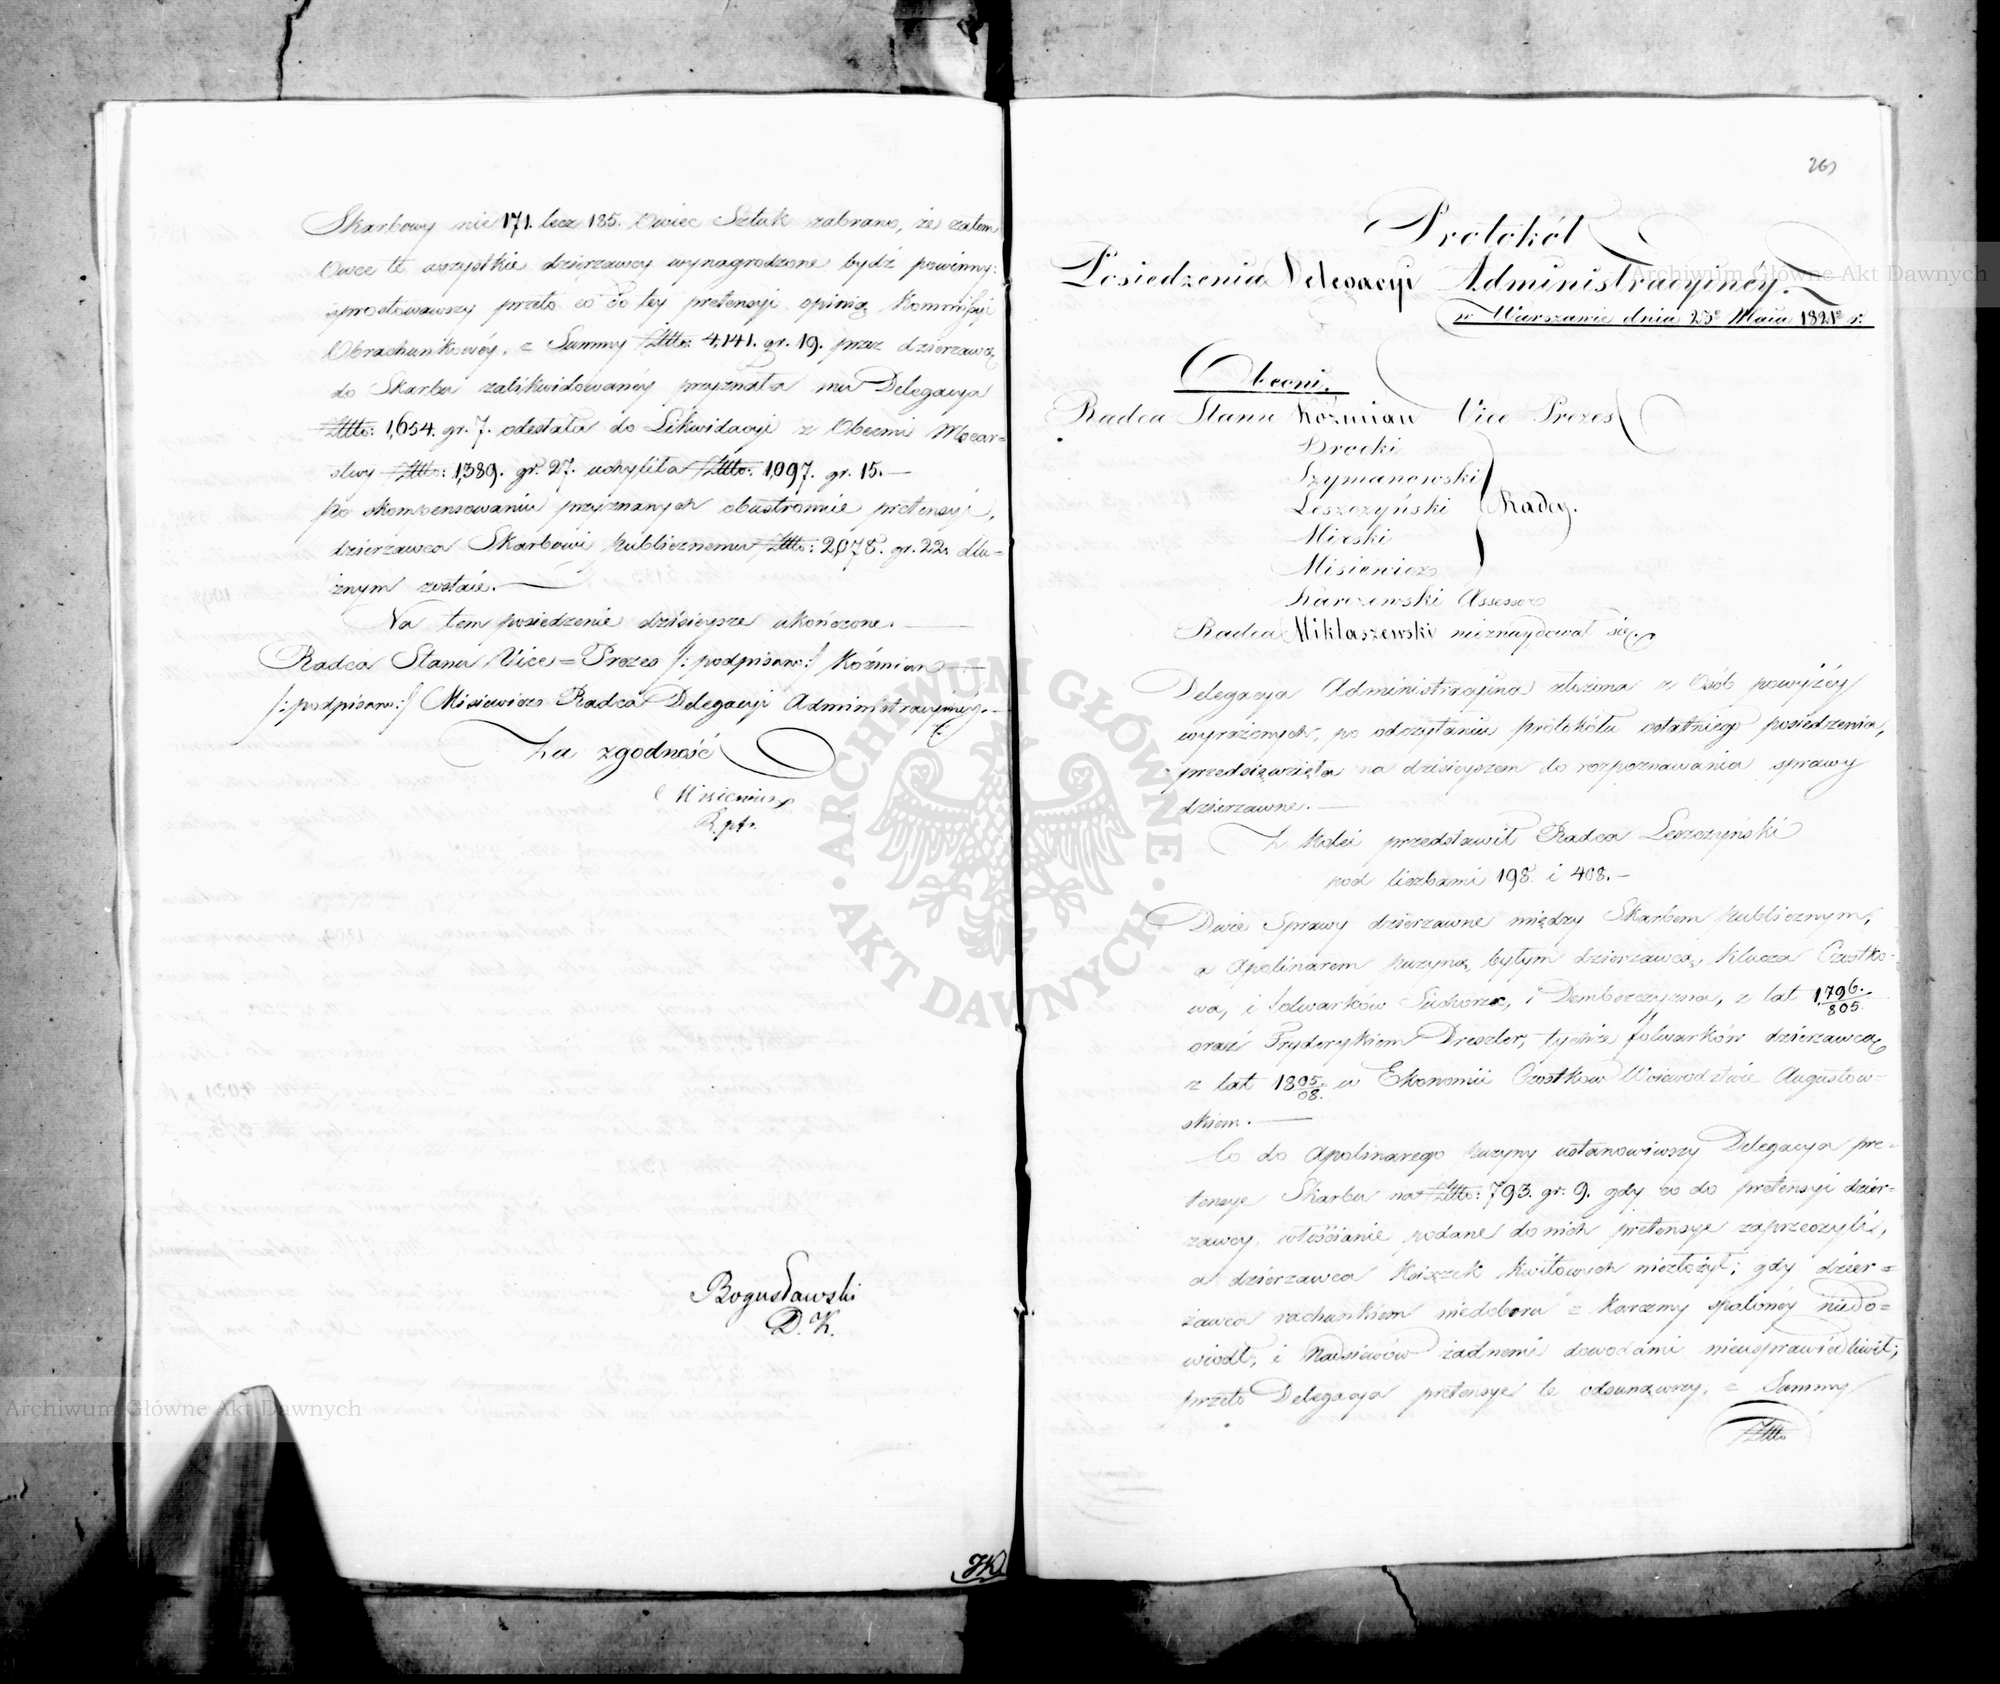 Skarbowy nie 171. lecz 185. Owiec Sztuk zabrano, że zatem
Owce te wszystkie dzierzawcy wynagrodzone bydź powinny:
sprostowawszy przeto co do tey pretensyi opinią Kommissyi
Obrachunkowéy, z Summy Złtto: 4,141. gr. 19. przez dzierzawcę
do Skarbu zalikwidowanéy przyznała mu Delegacya
Złtto: 1,654. gr. 7. odesłała do Likwidacyi z Obcemi Mocar-
stwy Złtto: 1,389. gr. 27. uchyliła Złtto: 1,097. gr. 15.—
po skompensowaniu przyznanych obustronnie pretensyi,
dzierzawca Skarbowi Publicznemu Złtto: 2,078. gr. 22. dłu-
żnym zostaie.
Na tem posiedzenie dzisieysze ukończone.—
Radca Stanu Vice=Prezes /:podpisano:/ Koźmian
/:podpisano:/ Misiewicz Radca Delegacyi Administracyinéy.
Za zgodność
Misiewicz
R. pt.
Bogusławski
D. K.
Protokół
Posiedzenia Delegacyi Administracyinéy.
w Warszawie dnia 23o Maia 1821o r.
Obecni,
Radca Stanu Koźmian Vice-Prezes
Brocki
Szymanowski
Leszczyński Radcy.
Mirski
Misiewicz
Karczewski Assessor
Radca Miklaszewski nieznaydował się.
Delegacya Administracyina złożona z Osób powyżéy
wyrażonych, po odczytaniu protokółu ostatniego posiedzenia,
przedsięwzięła na dzisieyszem do rozpoznawania sprawy
dzierzawne.—
Z kolei przedstawił Radca Leszczyński
pod liczbami 198. i 408.—
Dwie Sprawy dzierzawne między Skarbem Publicznym,
a Apolinarem Puzyną, byłym dzierzawcą, Klucza Czostko-
wa, i folwarków i Demborzyzna, z lat 1,796./805.
oraz Fryderykiem Dreszler, tychże folwarków dzierzawcą
z lat 1805/08. w Ekonomii Czostków Woiewództwie Augustow-
skiem.—
Co do Apolinarego Puzyny ustanowiwszy Delegacya pre-
tensye Skarbu na Złtto: 793. gr: 9. gdy co do pretensyi dzier-
zawcy, włościanie podane do nich pretensye zaprzeczyli,
a dzierzawca Ksiązek kwitowych niezłożył; gdy dzier=
żawca rachunkiem niedoboru z Karczmy spalonéy niedo=
wiodł, i Nadsiewów żadnemi dowodami nieusprawiedliwił;
przeto Delegacya pretensye te odsunąwszy, z Summy
Złtto
Archiwum Główne Akt Dawnych
Archiwum Główne Akt Dawnych
ARCHIWUM GŁÓWNE · AKT DAWNYCH ·